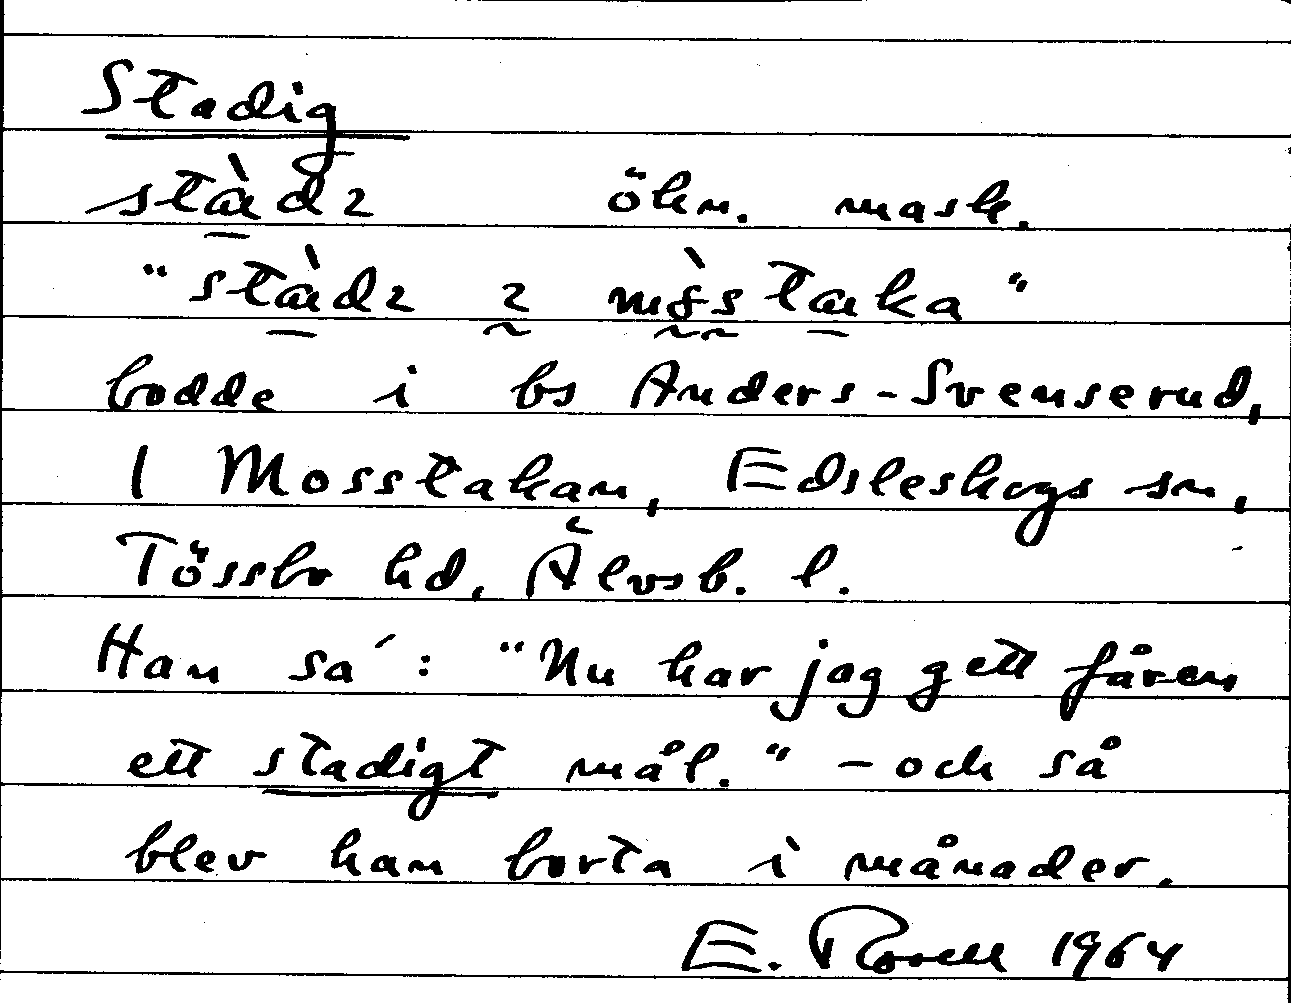 Stadig
stàdɩ ökn. mask.
"stàdɩ ɩ mòstaka"
bodde i bs Anders-Svenserud,
I Mosstakan, Edsleskogs sn,
Tössbo hd, Älvsb. l.
Han sa´: "Nu har jag gett fåren
ett stadigt mål." - och så
blev han borta i månader.
E. 1964